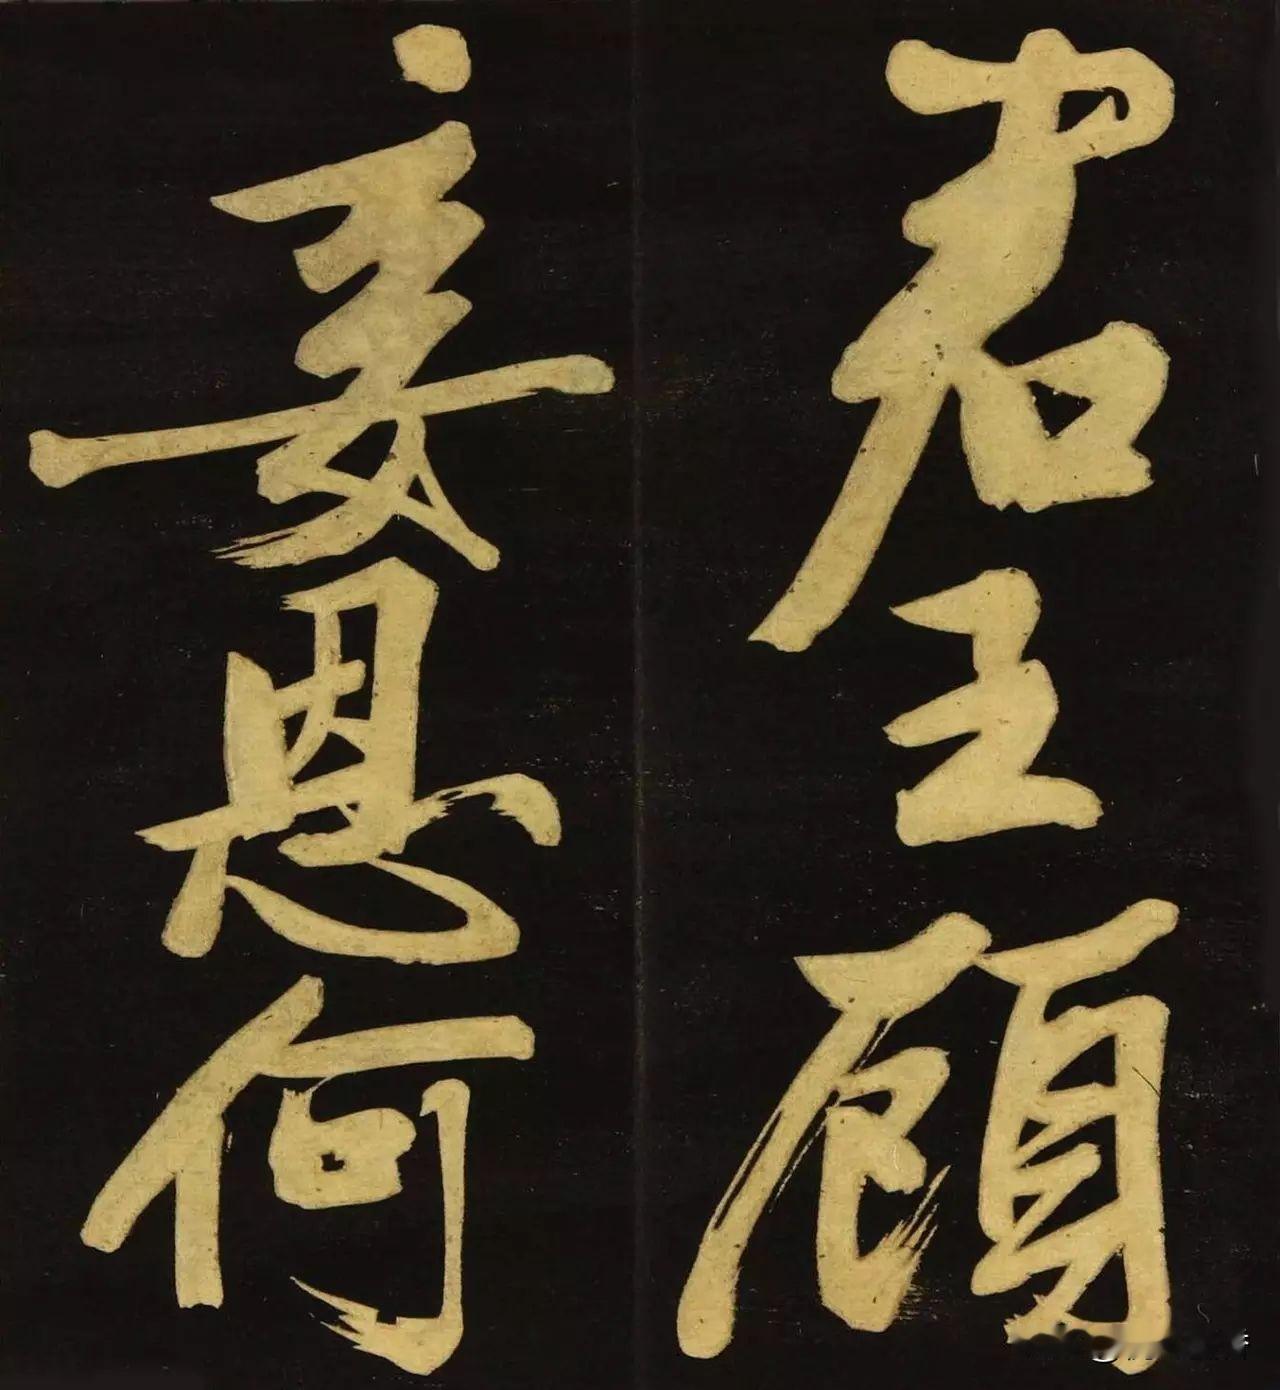 君王顧
妾恩何